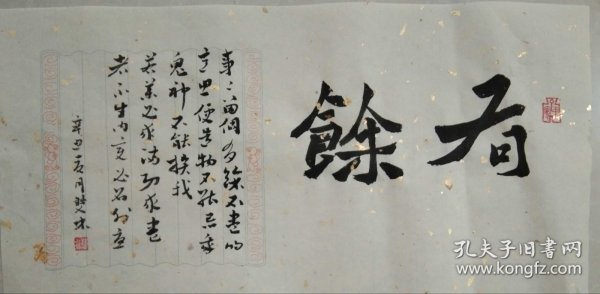 有餘
事〻留個有餘不盡的
意思便造物不能忌我
鬼神不能損我
若業必求满功求盡
者不生内変必召外憂
辛丑夏月
孔夫子旧书网
www.kongfz.com